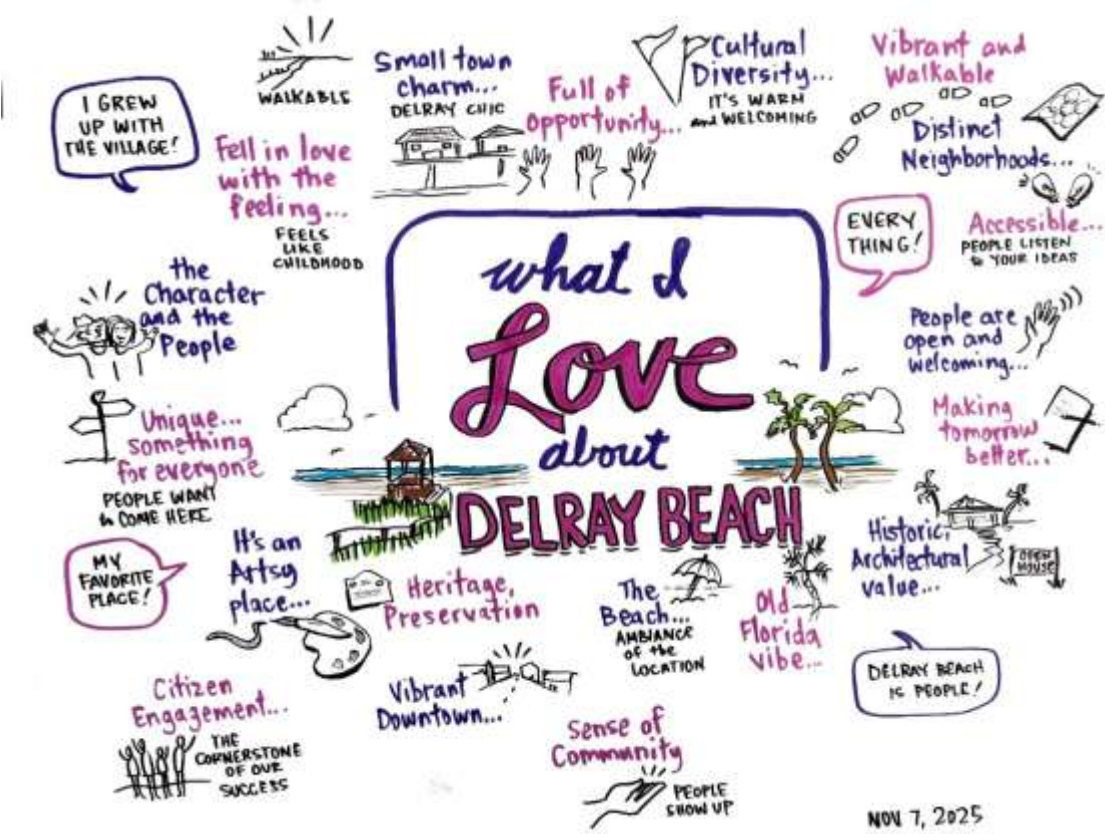 I GREW
UP WITH
THE VILLAGE!
WALKABLE
Small town
charm...
DELRAY CHIC
Full of
opportunity...
Cultural
Diversity...
IT'S WARM
and WELCOMING
Vibrant and
Walkable
Distinct
Neighborhoods...
Fell in love
with the
feeling...
FEELS
LIKE
CHILDHOOD
EVERY
THING!
Accessible...
PEOPLE LISTEN
to YOUR IDEAS
what I
Love
about
DELRAY BEACH
the
Character
and the
People
People are
open and
welcoming...
Unique...
something
for everyone
PEOPLE WANT
to COME HERE
Making
tomorrow
better...
MY
FAVORITE
PLACE!
It's an
Artsy
place...
Heritage,
Preservation
The
Beach...
AMBIANCE
OF the
LOCATION
Old
Florida
vibe...
Historic,
Architectural
value...
OPEN
HOUSE
DELRAY BEACH
IS PEOPLE!
Citizen
Engagement...
THE
CORNERSTONE
OF OUR
SUCCESS
Vibrant
Downtown...
Sense of
Community
PEOPLE
SHOW UP
NOV 7, 2025